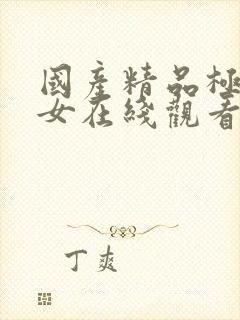 國產精品極
女在綫觀看
丁爽